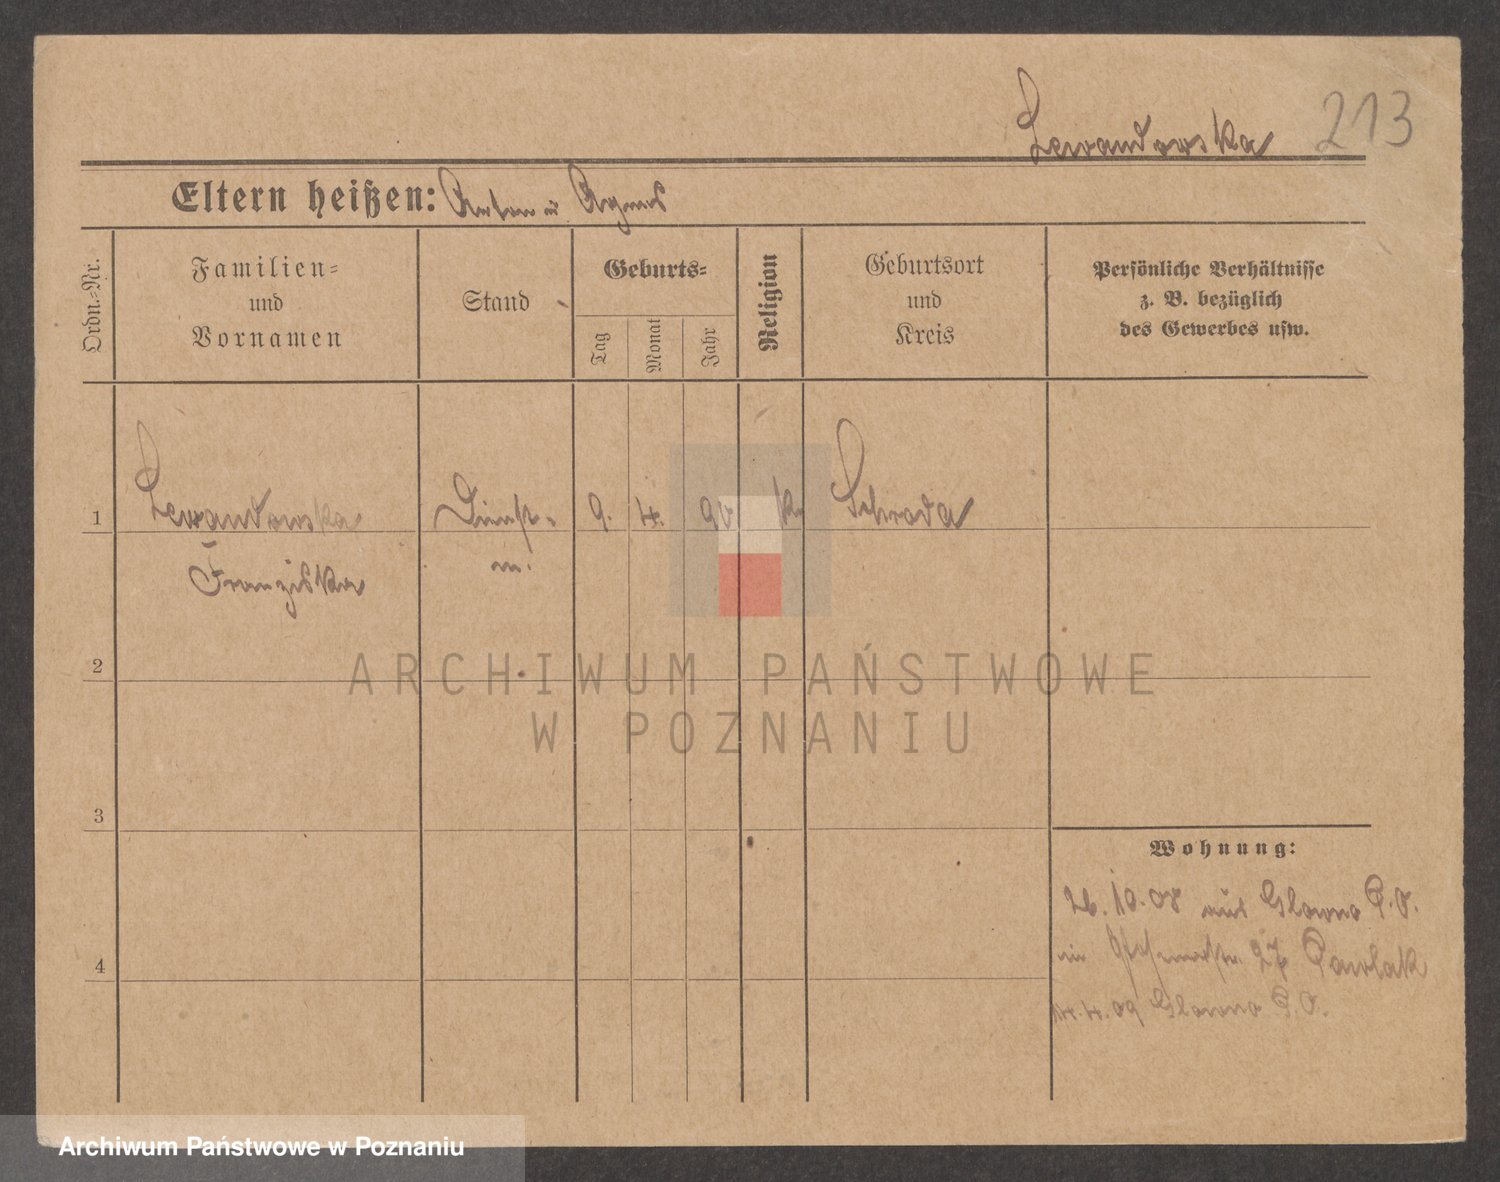 Lewandowska 213
Eltern heißen: Anton u Agnes
Ordn.-Nr.
Familien-
und
Vornamen
Stand
Geburts-
Tag
Monat
Jahr
Religion
Geburtsort
und
Kreis
Persönliche Verhältnisse
z. B. bezüglich
des Gewerbes usw.
1 Lewandowska Dienst- 9. 4. 90 k. Schroda
Franziska m.
2
3
4
Wohnung:
26.10.08 aus Glowno P.O.
27 Pawlak
14.4.09 Glowno P.O.
ARCHIWUM PAŃSTWOWE
W POZNANIU
Archiwum Państwowe w Poznaniu